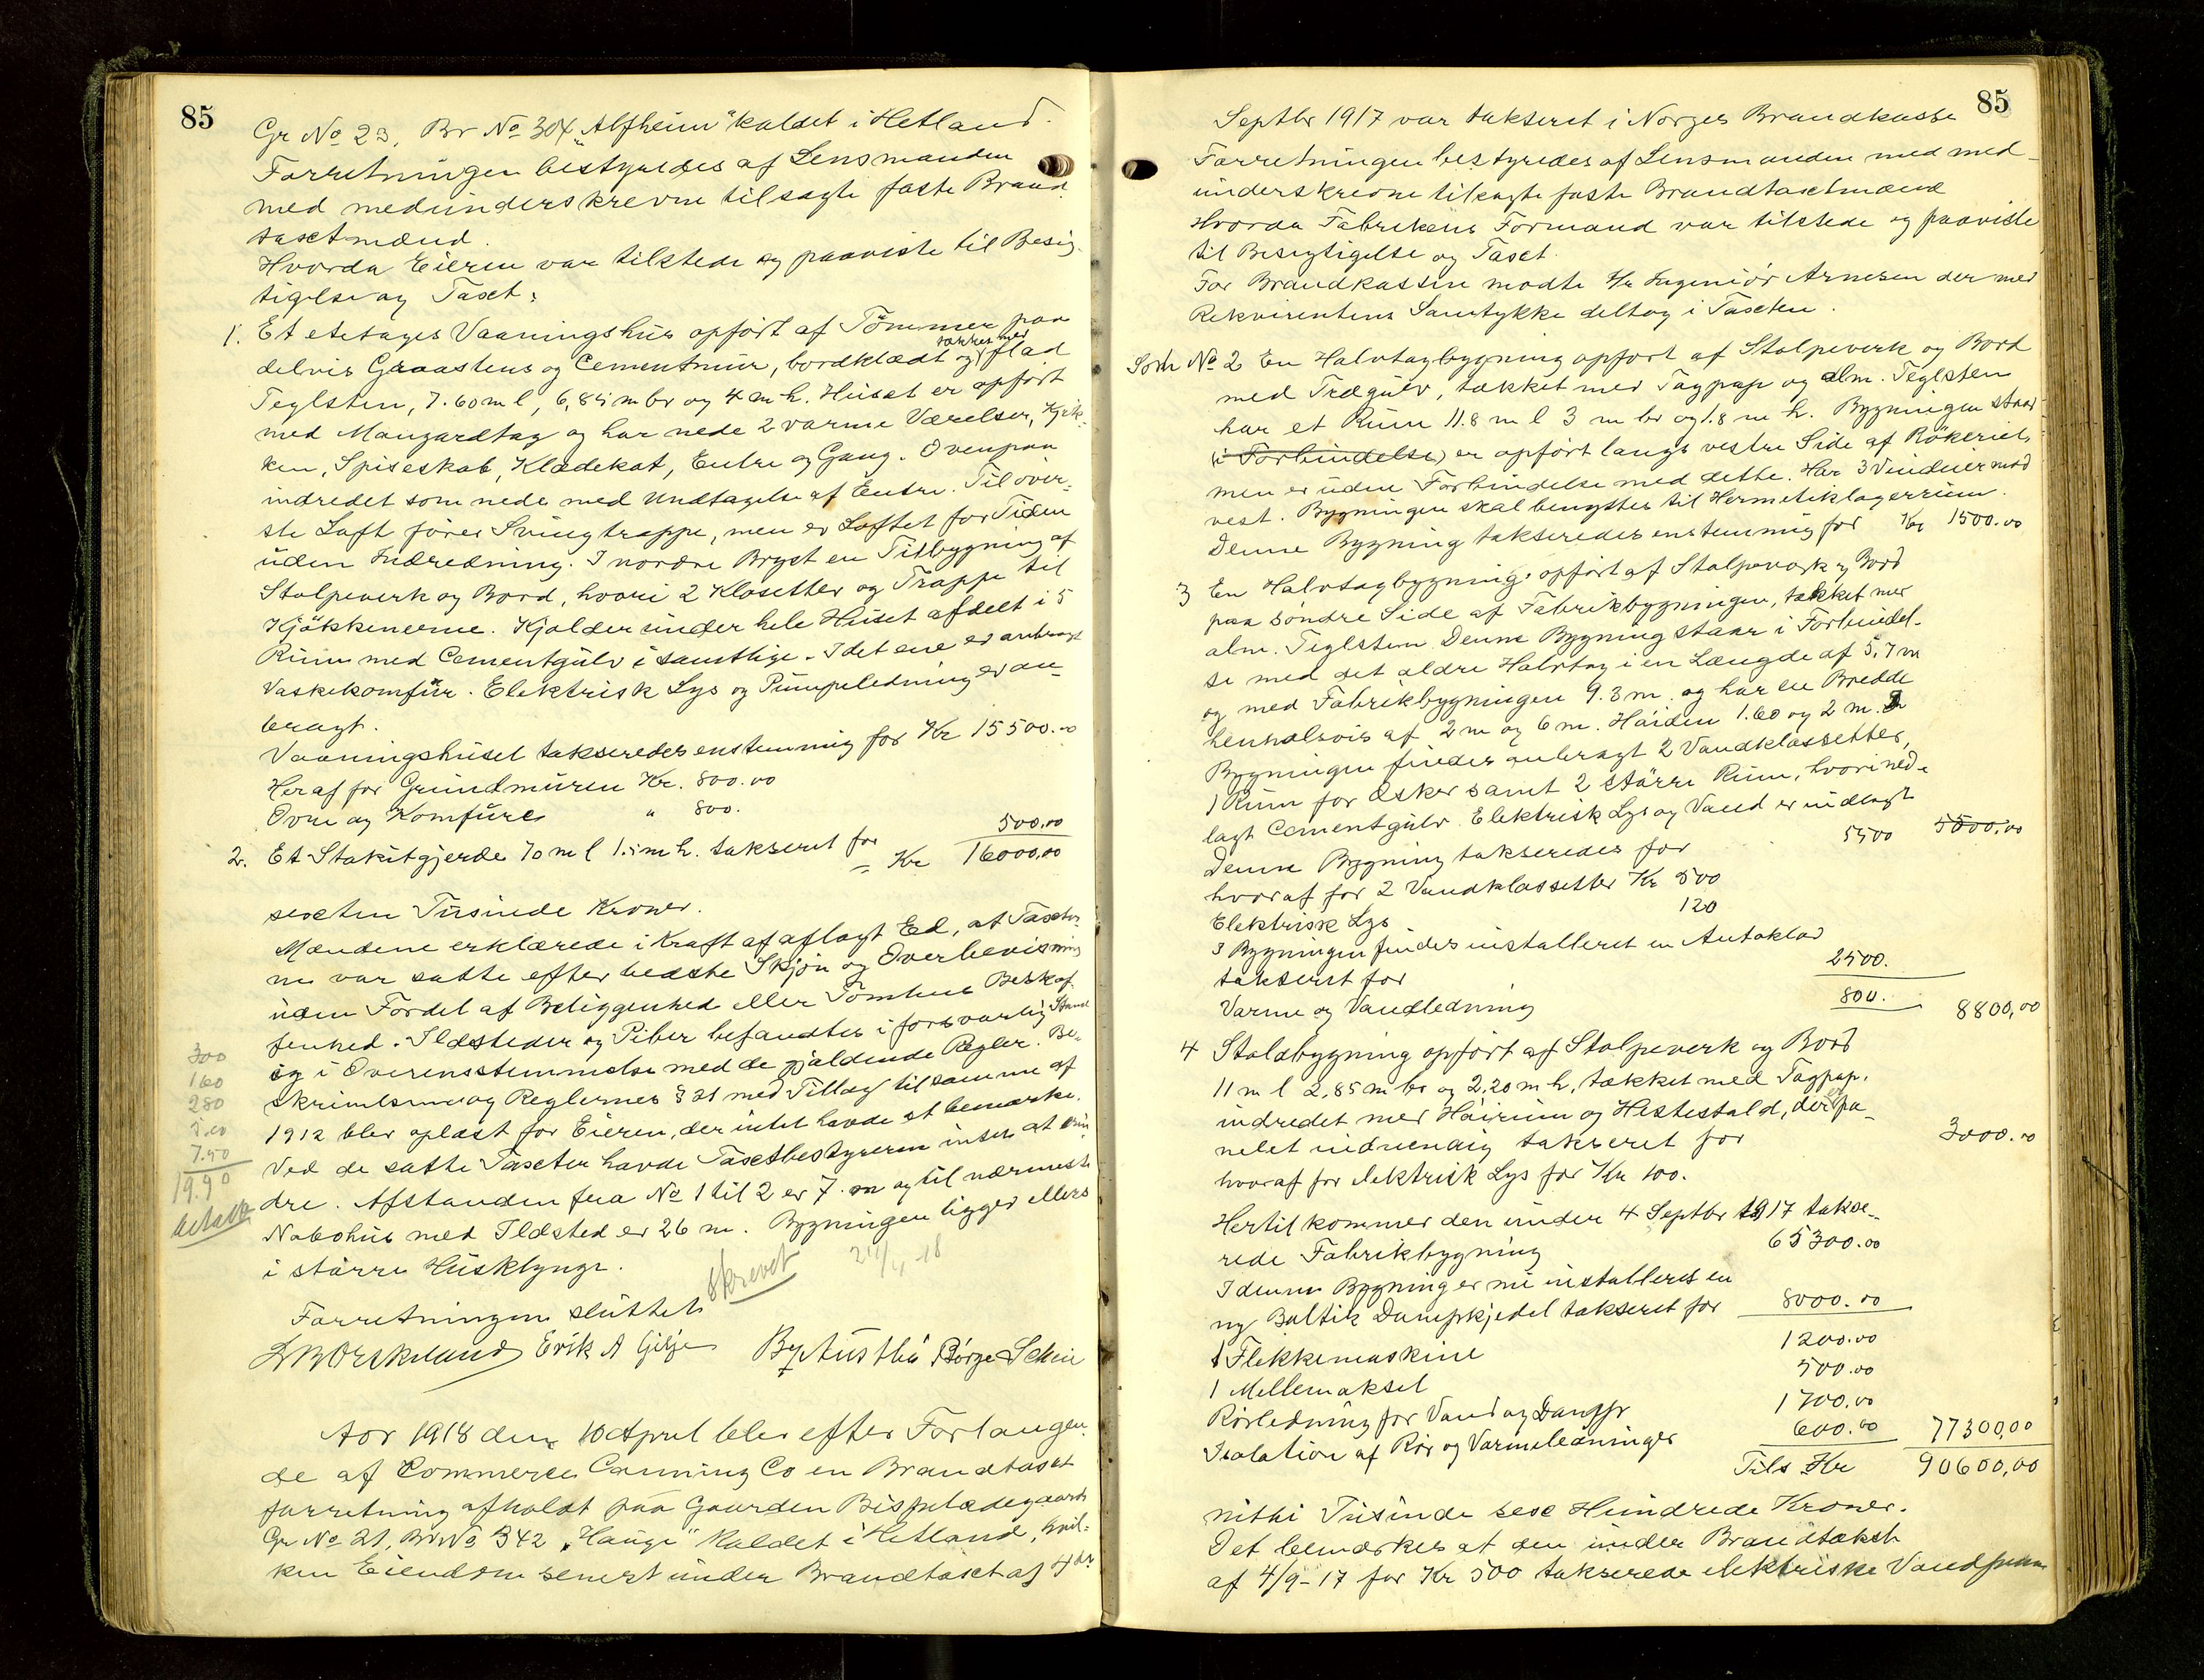 85
Gr No 23, Br No 304 „Alfheim" kaldet i Hetland.
Forretningen bestyredes af Lensmanden
med medunderskrevne tilsagte faste Brand
taxtmænd.
Hvorda Eieren var tilstede og paaviste til Besig-
tigelse og Taxt:
1. Et etetages Vaaningshus opført af Tømmer paa
delvis Graastens og Cementmur, bordklædt og tækket med flad
Teglsten, 7.60 m l, 6,85 m br og 4 m h. Huset er opført
med Mansardtag og har nede 2 varme Værelser, Kjøk-
ken, Spiseskab, Klædekot, Entre og Gang. Ovenpaa
indredet som nede med Undtagelse af Entre. Til øver-
ste Loft fører Svingtrappe, men er Loftet for Tiden
uden Indredning. I nordre Bryst en Tilbygning af
Stolpeverk og Bord, hvori 2 Klosetter og Trappe til
Kjøkkenerne. Kjælder under hele Huset afdelt i 5
Rum med Cementgulv i samtlige. I det ene er anbragt
Vaskekomfur. Elektrisk Lys og Pumpeledning er an-
bragt.
Vaaningshuset takseredes enstemmig for Kr 15500.00
Heraf for Grundmuren Kr. 800.00
Ovne og Komfurer " 800.
2. Et Stakitgjerde 70 m l 1.5 m h. takseret for 500.00
= Kr 16000,00
sexten Tusinde Kroner.
Mændene erklærede i Kraft af aflagt Ed, at Taxter-
ne var satte efter bedste Skjøn og Overbevisning
uden Fordel af Beliggenhed eller Tomtens Beskaf-
fenhed. Ildsteder og Piber befandtes i forsvarlig Stand
og i Overensstemmelse med de gjældende Regler. Be-
skrivelsen og Reglernes § 21 med Tillæg til samme af
1912 blev oplæst for Eieren, der intet havde at bemærke.
Ved de satte Taxter havde Taxtbestyreren intet at erin
dre. Afstanden fra No 1 til 2 er 7. m og til nærmeste
Nabohus med Ildsted er 26 m. Bygningen ligger ellers
i større Husklynge.
300
160
280
7.50
19.90
betalt
skrevet
Forretningen sluttet.
Erik A Gilje Børge Scheie
Aar 1918 den 10 April blev efter Forlangen-
de af Commerce Canning Co en Brandtaxt
forretning afholdt paa Gaarden Bispeladegaard
Gr No 21, Br No 342 „Hauge" kaldet i Hetland, hvil-
ken Eiendom senest under Brandtaxt af 4de
85
Septbr 1917 var takseret i Norges Brandkasse
Forretningen bestyredes af Lensmanden med med-
underskrevne tilsagte faste Brandtaxtmænd
Hvorda Fabrikens Formand var tilstede og paaviste
til Besigtigelse og Taxt.
For Brandkassen mødte Hr Ingeniør Arnesen der med
Rekvirentens Samtykke deltog i Taxten.
Som No 2 En Halvtagbygning opført af Stolpeverk og Bord
med Trægulv, tækket med Tagpap og alm. Teglsten
har et Rum 11.8 m l 3 m br og 1.8 m h. Bygningen staar
(i Forbindelse) er opført langs vestre Side af Røkeriet,
men er uden Forbindelse med dette. Har 3 Vinduer mod
vest. Bygningen skal benyttes til Hermetiklagerrum.
Denne Bygning takseredes enstemmig for Kr 1500.00
3 En Halvtagbygning opført af Stolpeverk og Bord
paa søndre Side af Fabrikbygningen, tækket med
alm. Teglsten. Denne Bygning staar i Forbindel-
se med det ældre Halvtag i en Længde af 5,7 m
og med Fabrikbygningen 9.3 m. og har en Bredde
henholsvis af 2 m og 6 m. Høiden 1.60 og 2 m. I
Bygningen findes anbragt 2 Vandklossetter,
1 Rum for Æsker samt 2 større Rum, hvori ned-
lagt Cementgulv. Elektrisk Lys og Vand er indlagt
Denne Bygning takseredes for 5500 5500.00
hvoraf for 2 Vandklossetter Kr 500
Elektrisk Lys 120
I Bygningen findes installeret en Autoklav
takseret for 2500.
Varme og Vandledning 800. 8800,00
4 Staldbygning opført af Stolpeverk og Bord
11 m l 2,85 m br og 2,20 m h, tækket med Tagpap,
indredet med Høirum og Hestestald, der er pa-
nelet indvendig takseret for 3000.00
hvoraf for elektrisk Lys for Kr 100.
Hertil kommer den under 4 Septbr 1917 takse-
rede Fabrikbygning 65300.00
I denne Bygning er nu installeret en
ny Baltik Dampkjedel takseret for 8000.00
1 Flekkemaskine 1200.00
1 Mellemaksel 500.00
Rørledning for Vand og Damp for 1700.00
Isolation af Rør og Varmeledninger 600.00 77300,00
Tils Kr 90600,00
nitti Tusinde sex Hundrede Kroner.
Det bemærkes at den under Brandtakst
af 4/9-17 for Kr 500 takserede elektriske Vandpum